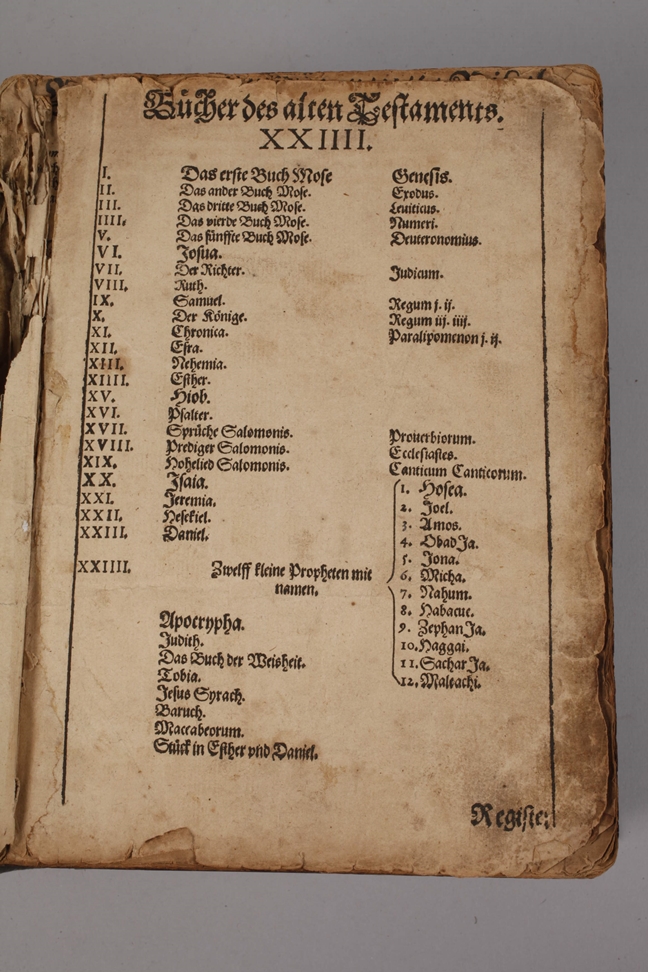 Bücher des alten Testaments.
XXIIII.
I. Das erste Buch Mose Genesis.
II. Das ander Buch Mose. Exodus.
III. Das dritte Buch Mose. Leuiticus.
IIII. Das vierde Buch Mose. Numeri.
V. Das fünffte Buch Mose. Deuteronomius.
VI. Josua.
VII. Der Richter. Judicum.
VIII. Ruth.
IX. Samuel. Regum j. ij.
X. Der Könige. Regum iij. iiij.
XI. Chronica. Paralipomenon j. ij.
XII. Esra.
XIII. Nehemia.
XIIII. Esther.
XV. Hiob.
XVI. Psalter.
XVII. Sprüche Salomonis. Prouerbiorum.
XVIII. Prediger Salomonis. Ecclesiastes.
XIX. Hohelied Salomonis. Canticum Canticorum.
XX. Isaia.
XXI. Jeremia.
XXII. Hesekiel.
XXIII. Daniel.
XXIIII. Zwelff kleine Propheten mit
namen.
1. Hosea.
2. Joel.
3. Amos.
4. ObadJa.
5. Jona.
6. Micha.
7. Nahum.
8. Habacuc.
9. ZephanJa.
10. Haggai.
11. SacharJa.
12. Maleachi.
Apocrypha.
Judith.
Das Buch der Weisheit.
Tobia.
Jesus Syrach.
Baruch.
Maccabeorum.
Stück in Esther vnd Daniel.
Register